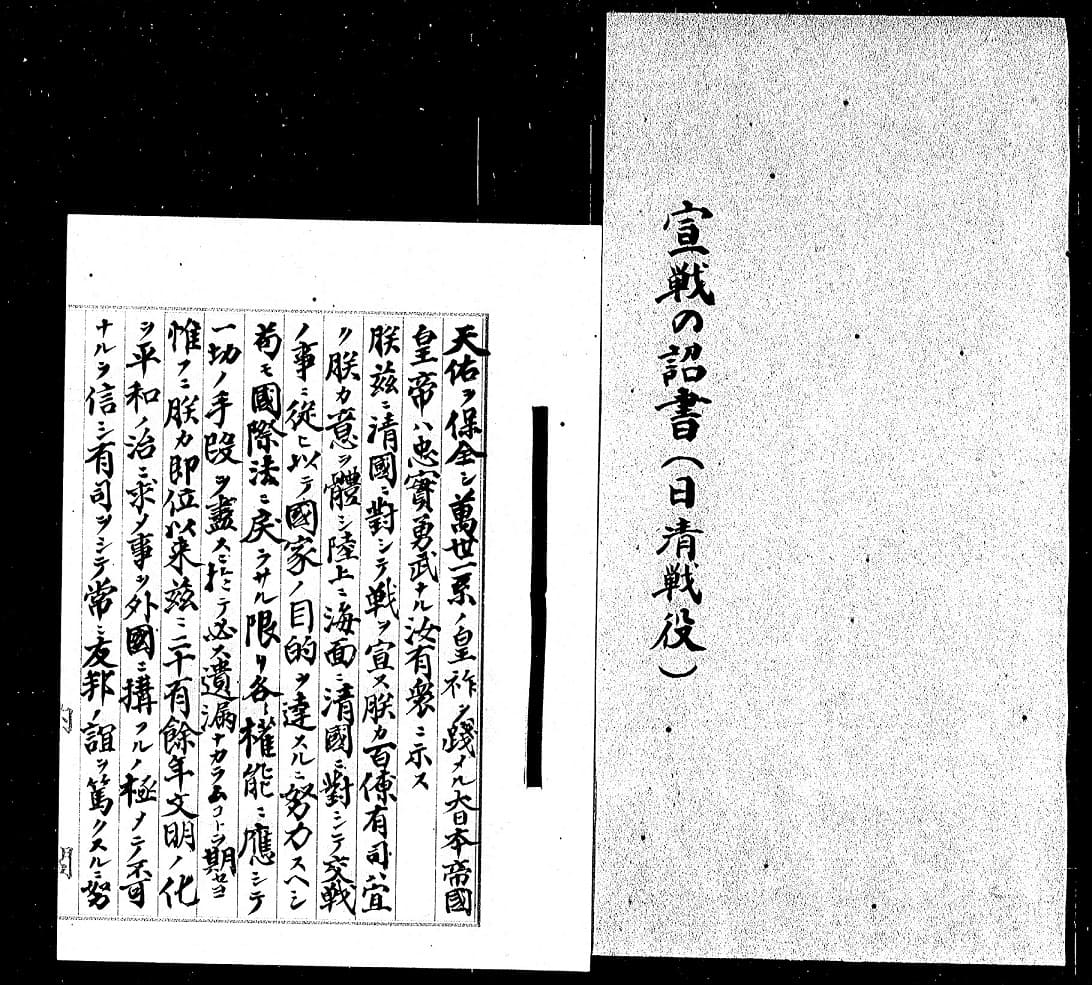 宣戦の詔書(日清戦役)
天佑ヲ保全シ萬世一系ノ皇祚ヲ踐メル大日本帝國
皇帝ハ忠實勇武ナル汝有衆ニ示ス
朕茲ニ清國ニ對シテ戦ヲ宣ス朕カ百僚有司ハ宜
ク朕カ意ヲ體シ陸上ニ海面ニ清國ニ對シテ交戦
ノ事ニ從ヒ以テ國家ノ目的ヲ達スルニ努力スヘシ
苟モ國際法ニ戻ラサル限リ各〻權能ニ應シテ
一切ノ手段ヲ盡スニ於テ必ス遺漏ナカラムコトヲ期セヨ
惟フニ朕カ即位以来茲ニ二十有餘年文明ノ化
ヲ平和ノ治ニ求メ事ヲ外國ニ構フルノ極メテ不可
ナルヲ信シ有司ヲシテ常ニ友邦ノ誼ヲ篤クスルニ努